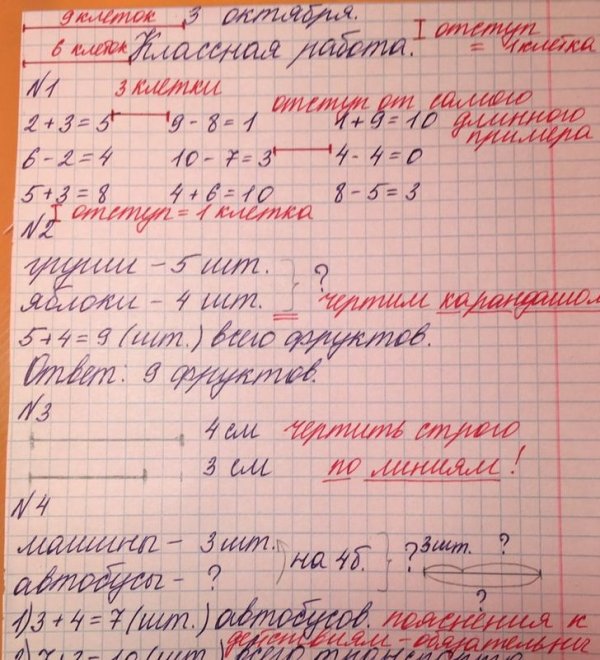 9 клеток 3 октября.
6 клеток Классная работа. отступ = 1 клетка
№1 3 клетки
отступ от самого длинного примера
2+3=5 9-8=1 1+9=10
6-2=4 10-7=3 4-4=0
5+3=8 4+6=10 8-5=3
отступ = 1 клетка
№2
груши – 5 шт.
яблоки – 4 шт. } ? = чертим карандашом
5+4=9 (шт.) всего фруктов.
Ответ: 9 фруктов.
№3
4 см чертить строго
3 см по линиям!
№4
машины – 3 шт. 
автобусы – ? на 4б. } ? 3 шт. ? ?
1) 3+4=7 (шт.) автобусов. пояснения к
действиям – обязательны
2) 7+3=10 (шт.) всего